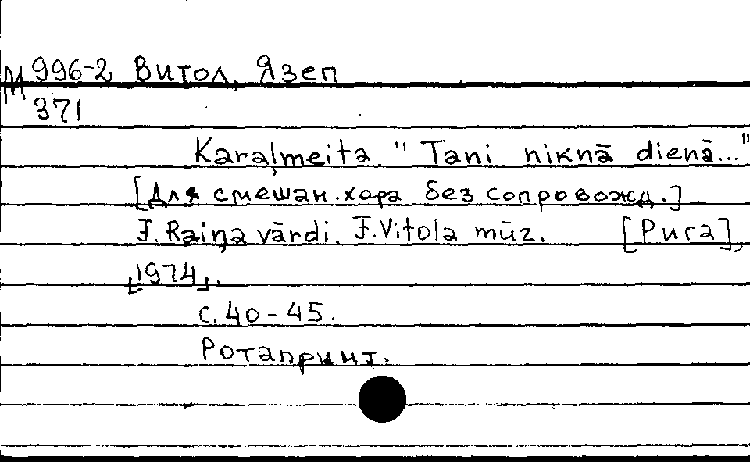 М 996-2 Витол, Язеп
371
Karaļmeita "Tani niknā dienā..."
[Для смешан. хора без сопровожд.]
J. Raiņa vārdi. J. Vitola mūz. [Рига],
[1974].
С. 40-45.
Ротапринт.